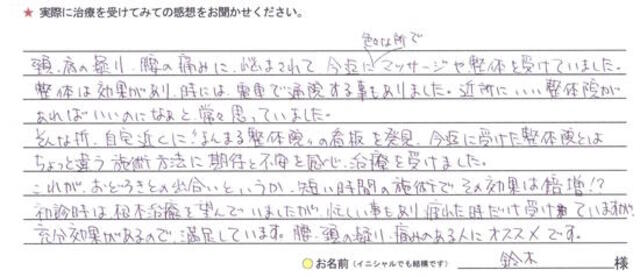 ★ 実際に治療を受けてみての感想をお聞かせください。
色々な所で
頸、肩の凝り、腰の痛みに、悩まされて 今迄に マッサージや整体を受けていました。
整体は効果があり、時には、電車で通院する事もありました。近所に いい整体院が
あればいいのになぁと 常々 思っていました。
そんな折、自宅近くに"はんまる整体院"の看板を発見、今迄に受けた整体院とは
ちょっと違う 施術方法に 期待と不安を感じ、治療を受けました。
これが、おどろきとの出合いというか、短い時間の施術で その効果は倍増!?
初診時は 根本治療を望んでいましたが、忙しい事もあり 疲れた時だけ受けていますが、
充分効果があるので、満足しています。腰、頸の凝り、痛みのある人に オススメ です。
お名前（イニシャルでも結構です） 鈴木 様